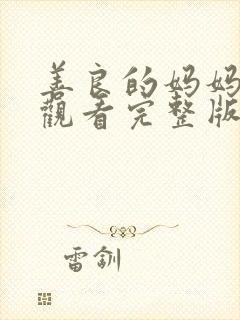 善良的妈妈
觀看完整版
雷釧